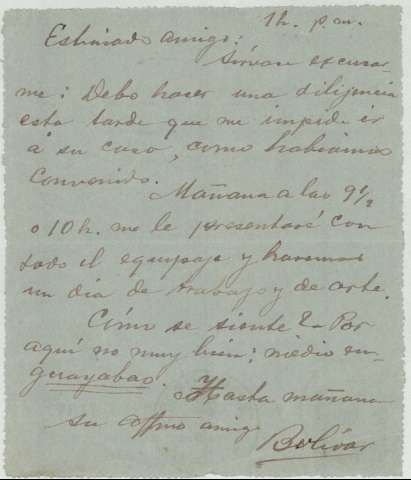 1h. p.m.
Estimado amigo:
Sírvase excusar-
me: Debo hacer una diligencia
esta tarde que me impide ir
á su casa, como habíamos
convenido.
Mañana a las 9 1/2
o 10 h. me le presentaré con
todo el equipaje y haremos
un día de trabajo y de arte.
Cómo se siente? Por
aquí no muy bien: medio en-
guayabao.
Hasta mañana
su affmo amigo
Bolívar